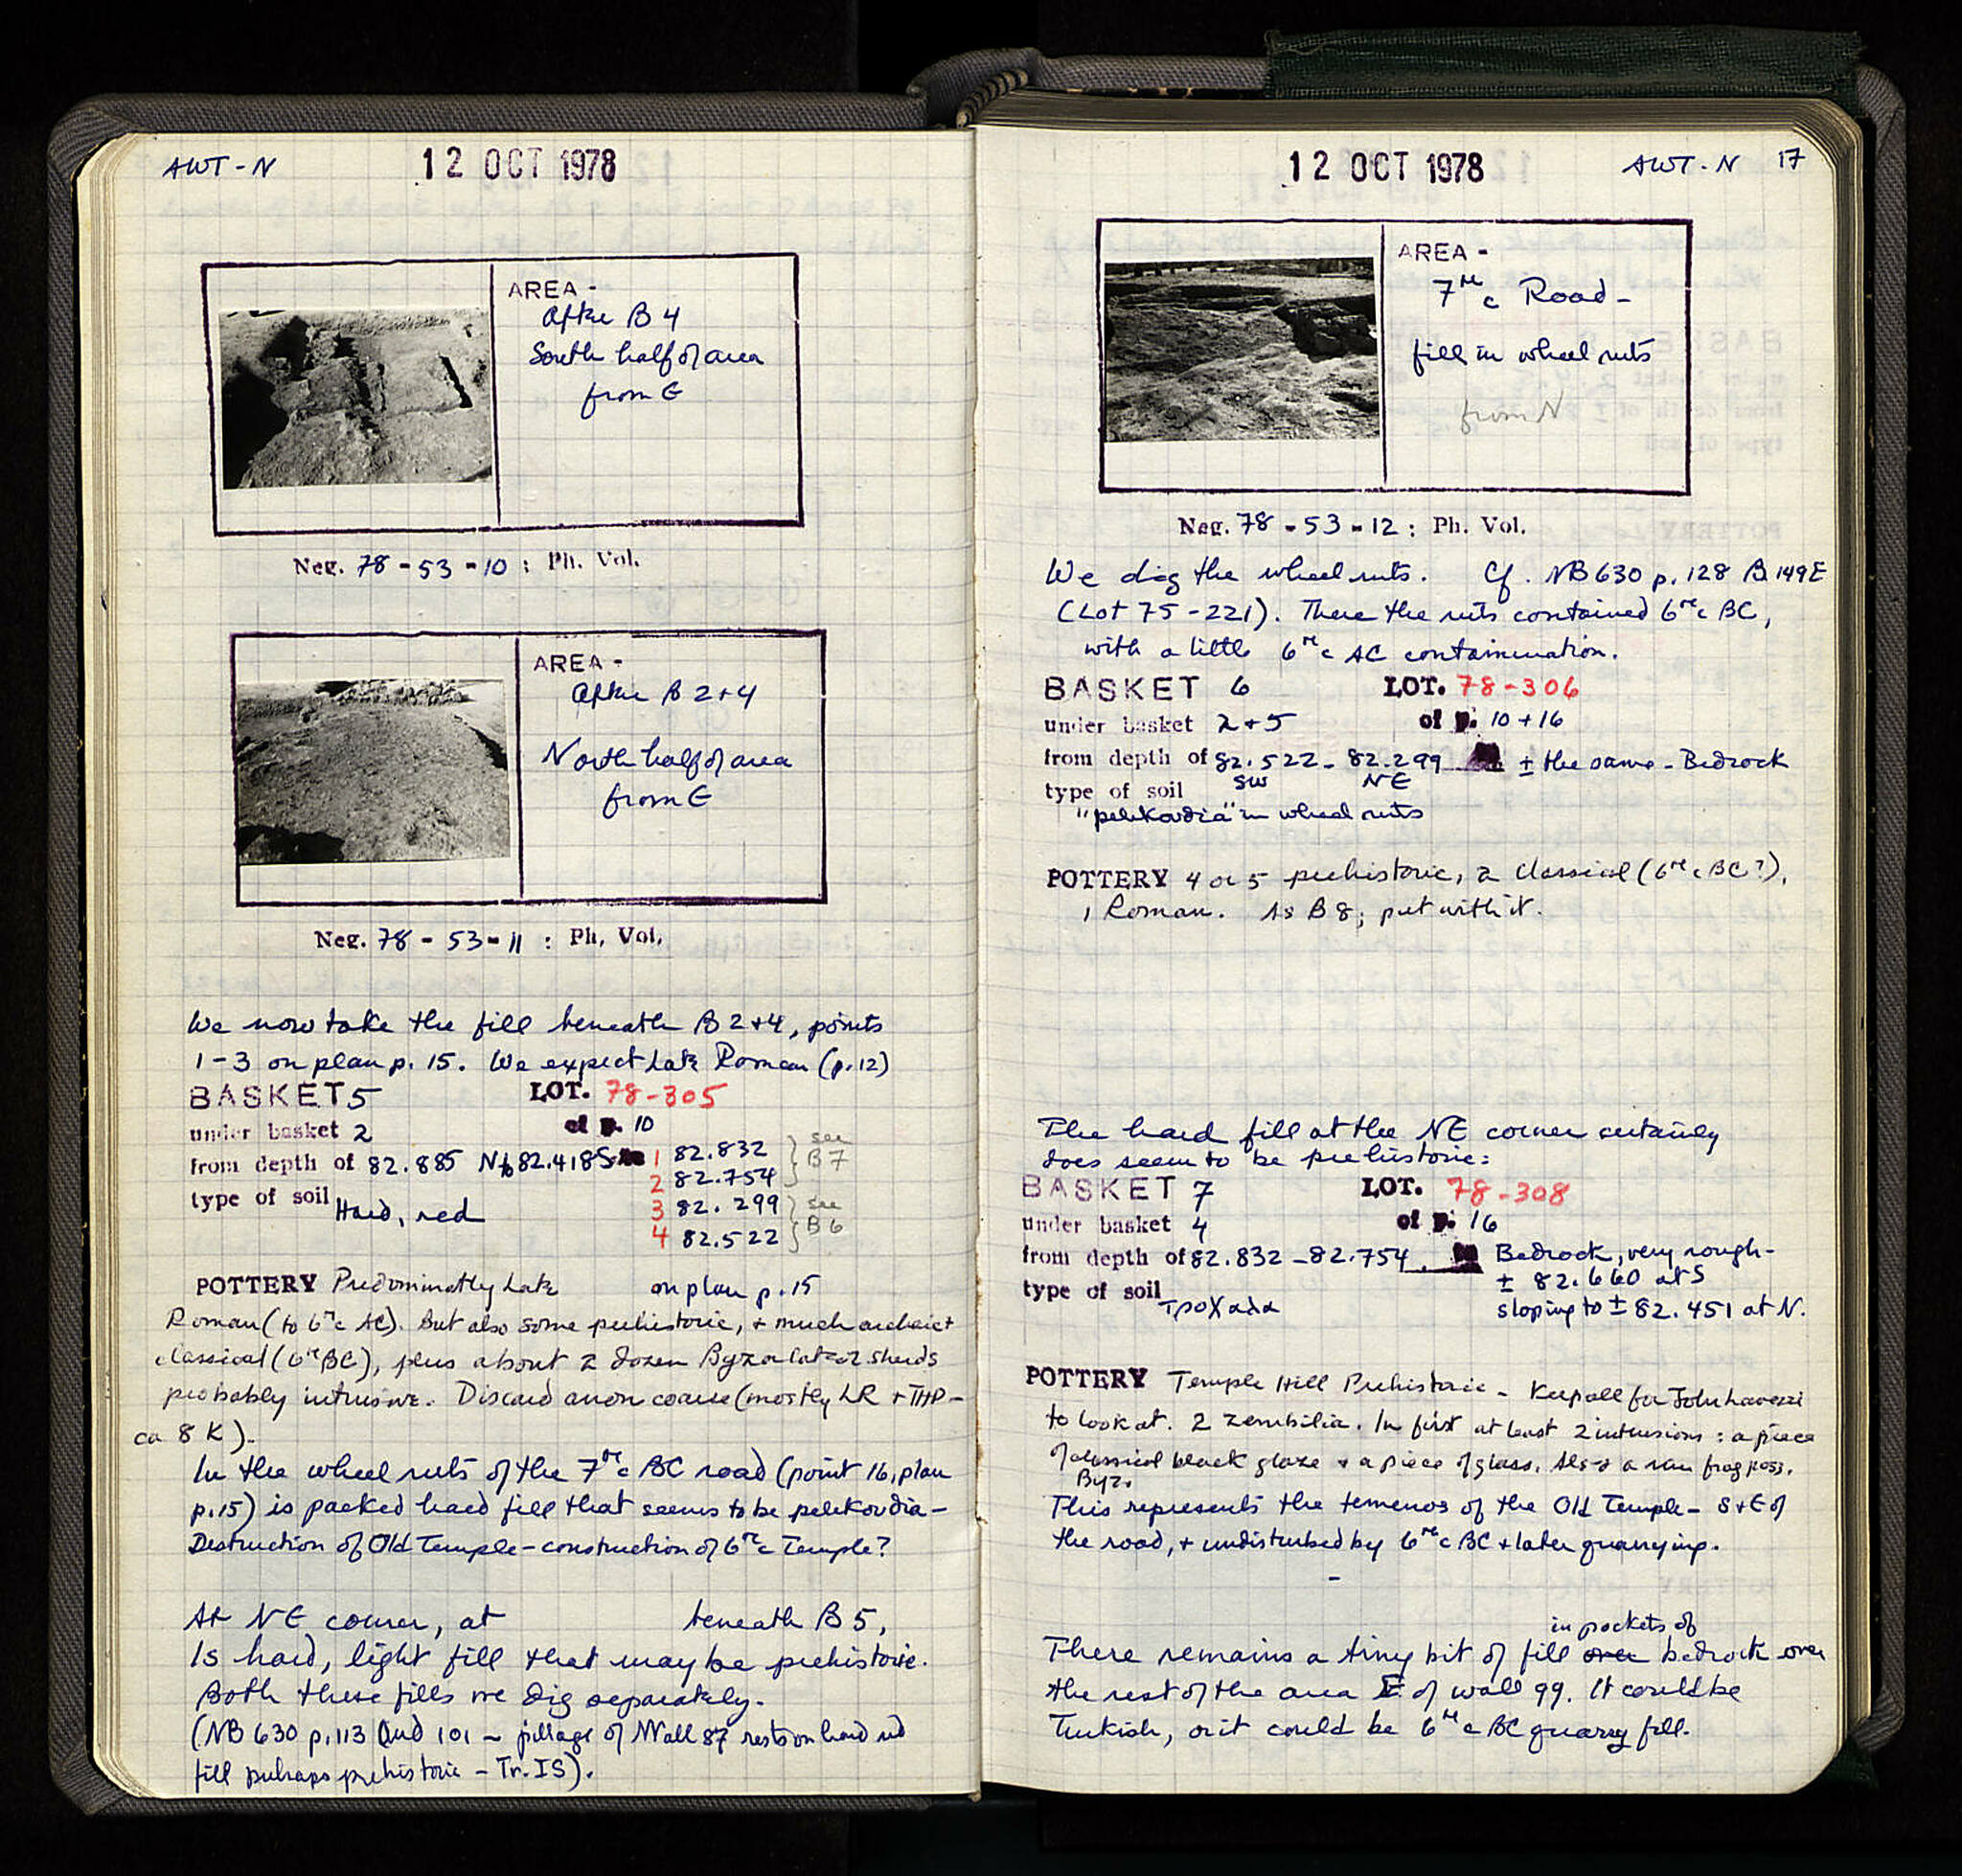 AWT-N
12 OCT 1978
AREA -
After B 4
South half of area
from E
Neg. 78 - 53 - 10 : Ph. Vol.
AREA -
After B 2+4
North half of area
from E
Neg. 78 - 53 - 11 : Ph. Vol.
We now take the fill beneath B 2+4, points
1-3 on plan p. 15. We expect Late Roman (p.12)
BASKET 5 LOT. 78-305
under basket 2 of p. 10
from depth of 82.885 N to 82.418 S 1 82.832 see
2 82.754 B7
type of soil Hard, red 3 82.299 see
4 82.522 B6
POTTERY Predominatly Late on plan p. 15
Roman (to 6th c AC). But also some prehistoric, + much archaic +
classical (6th BC), plus about 2 dozen Byz or later sherds
probably intrusive. Discard anon coarse (mostly LR + THP-
ca 8 K).
In the wheel ruts of the 7th c BC road (point 16, plan
p.15) is packed hard fill that seems to be pelekoudia-
Destruction of Old Temple - construction of 6th c Temple?
At NE corner, at beneath B 5,
Is hard, light fill that may be prehistoric.
Both these fills we dig separately.
(NB 630 p. 113 Qud 101 - pillage of NWall 87 rests on hard red
fill perhaps prehistoric - Tr. IS).
12 OCT 1978
AWT-N 17
AREA -
7th c Road-
fill in wheel ruts
from N
Neg. 78 - 53 - 12 : Ph. Vol.
We dig the wheel ruts. Cf. NB 630 p. 128 B 149E
(Lot 75-221). There the ruts contained 6th c BC,
with a little 6th c AC contamination.
BASKET 6 LOT. 78-306
under basket 2+5 of p. 10+16
from depth of 82.522 - 82.299 ± the same - Bedrock
type of soil SW NE
"pelekoudia" in wheel ruts
POTTERY 4 or 5 prehistoric, 2 classical (6th c BC?),
1 Roman. As B 8; put with it.
The hard fill at the NE corner certainly
does seem to be prehistoric:
BASKET 7 LOT. 78-308
under basket 4 of p. 16
from depth of 82.832 - 82.754 Bedrock, very rough-
± 82.660 at S
type of soil τροχαδα sloping to ± 82.451 at N.
POTTERY Temple Hill Prehistoric - Keep all for John Lavezzi
to look at. 2 zembilia. In first at least 2 intrusions: a piece
of classical black glaze + a piece of glass. Also a rim frag poss.
Byz.
This represents the temenos of the Old Temple - S+E of
the road, + undisturbed by 6th c BC + later quarrying.
in pockets of
There remains a tiny bit of fill over bedrock over
the rest of the area E of wall 99. It could be
Turkish, or it could be 6th c BC quarry fill.